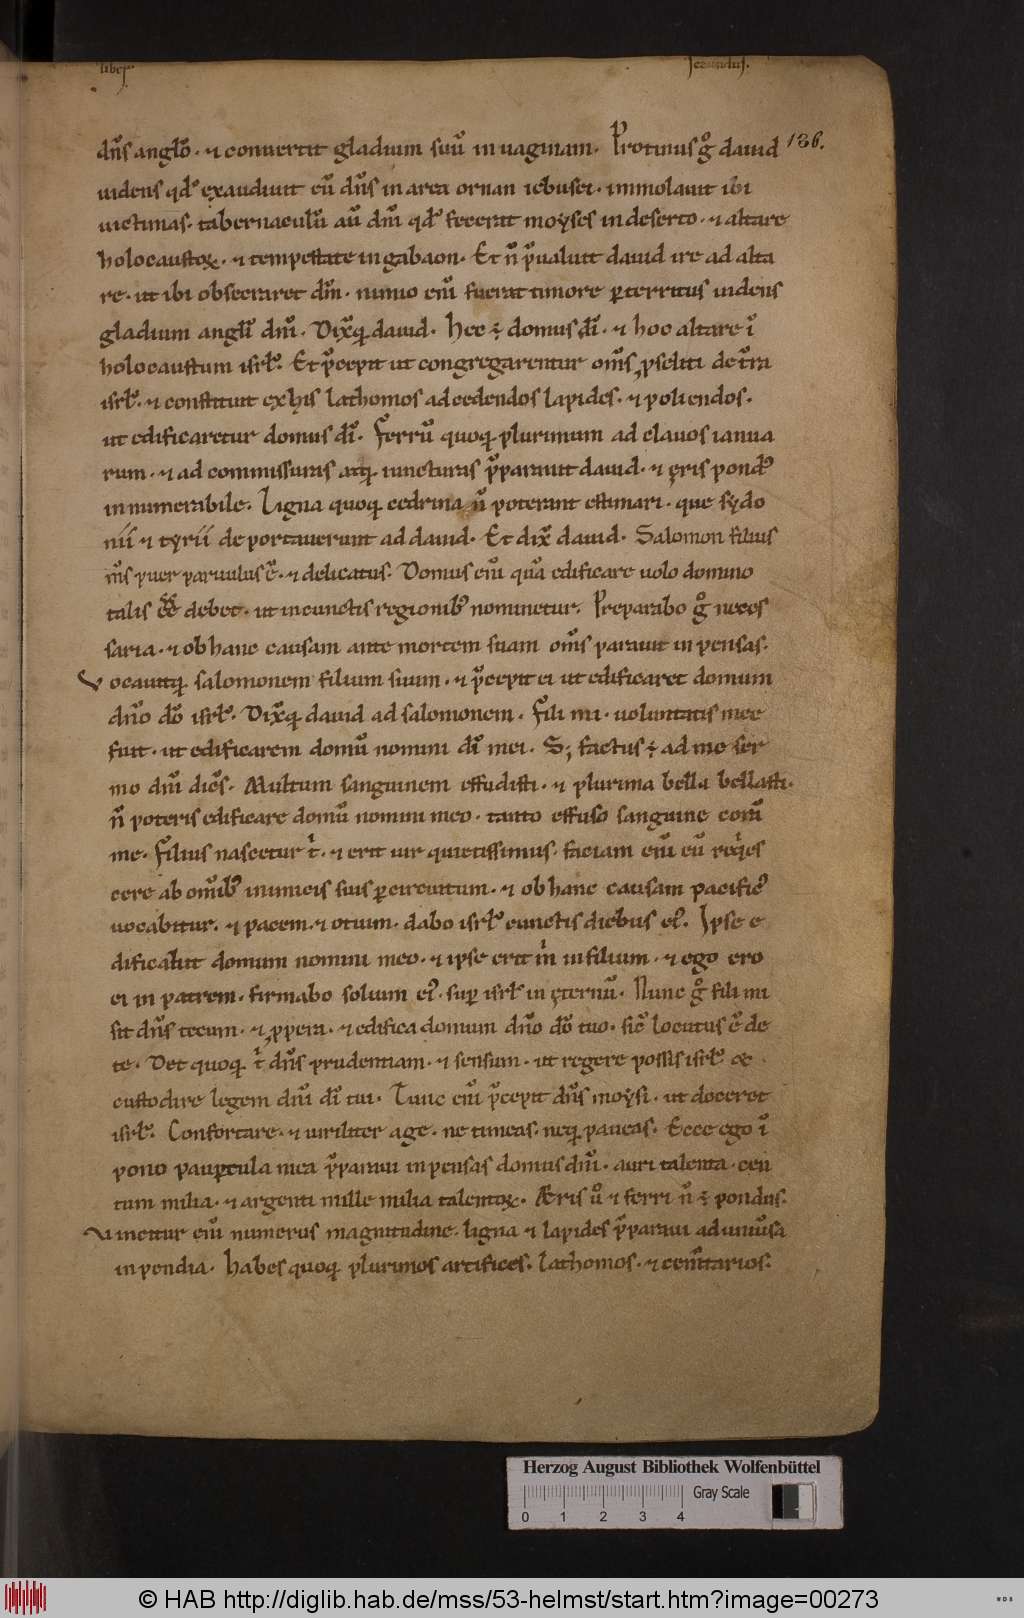 liber secundus.
dn̄s anglo᷒. ⁊ conuertit gladium suū in uaginam. Protinus gͦ dauid 136.
uidens qd̓ exaudiuit eū dn̄s in area ornan iebusei. immolauit ibi
uictimas. tabernaculū aū dn̄i qd̓ fecerat moẏses in deserto. ⁊ altare
holocaustoꝝ. ⁊ tempestate in gabaon. Et n̄ p̄ualuit dauid ire ad alta
re. ut ibi obsecraret dm̄. nimio eni̅ fuerat timore ꝑterritus uidens
gladium angl̓i dn̄i. Dix̄ꝗ dauid. Hec ÷ domus di̅. ⁊ hoc altare ī
holocaustum isrl̓. Et p̄cepit ut congregarentur om̄s ꝓseliti de t̄ra
isrl̓. ⁊ constituit ex his lathomos ad cedendos lapides. ⁊ poliendos.
ut edificaretur domus di̅. Ferrū quoqꝫ plurimum ad clauos ianua
rum. ⁊ ad commissuras atqꝫ iuncturas p̄parauit dauid. ⁊ ęris pond᷒
innumerabile. Ligna quoqꝫ cedrina n̄ poterant estimari. que sẏdo
nii ⁊ tyrii deportauerunt ad dauid. Et dix̄ dauid. Salomon filius
m̄s puer paruulus ē. ⁊ delicatus. Domus eni̅ qua̅ edificare uolo domino
talis ee̅ debet. ut in cunctis regionib᷒ nominetur. Preparabo gͦ neces
saria. ⁊ ob hanc causam ante mortem suam om̄s parauit inpensas.
Vocauitqꝫ salomonem filium suum. ⁊ p̄cepit ei ut edificaret domum
dn̄o dō isrl̓. Dix̄ꝗ dauid ad salomonem. Fili mi. uoluntatis mee
fuit. ut edificarem domū nomini di̅ mei. Sꝫ factus ÷ ad me ser
mo dn̄i dicēs. Multum sanguinem effudisti. ⁊ plurima bella bellasti.
n̄ poteris edificare domū nomini meo. tanto effuso sanguine cora̅
me. Filius nascetur tⁱ. ⁊ erit uir quietissimus. faciam eni̅ eū reqⁱes
cere ab om̄ib᷒ inimicis suis ꝑcircuitum. ⁊ ob hanc causam pacific᷒
uocabitur. ⁊ pacem. ⁊ otium. dabo isrl̓ cunctis diebus ei᷒. Ipse e
dificabit domum nomini meo. ⁊ ipse erit mⁱ in filium. ⁊ ego ero
ei in patrem. firmabo solium ei᷒. suꝑ isrl̓ in ęternū. Nunc gͦ fili mi
sit dn̄s tecum. ⁊ ꝓspera. ⁊ edifica domum dn̄o dō tuo. sic̄ locutus ē de
te. Det quoqꝫ tⁱ dn̄s prudentiam. ⁊ sensum. ut regere possis isrl̓ &
custodire legem dn̄i di̅ tui. Tunc eni̅ p̄cepit dn̄s moẏsi. ut doceret
isrl̓. Confortare. ⁊ uiriliter age. ne timeas. neqꝫ paueas. Ecce ego ī
pono pauꝑcula mea p̄paraui inpensas domus dn̄i. auri talenta. cen
tum milia. ⁊ argenti mille milia talentoꝝ. Æris uͦ ⁊ ferri n̄ ÷ pondus.
Vincitur eni̅ numerus magnitudine. ligna ⁊ lapides p̄paraui ad uniū̓sa
inpendia. Habes quoqꝫ plurimos artifices. lathomos. ⁊ cem̄tarios.
Herzog August Bibliothek Wolfenbüttel
Gray Scale
0 1 2 3 4
© HAB http://diglib.hab.de/mss/53-helmst/start.htm?image=00273